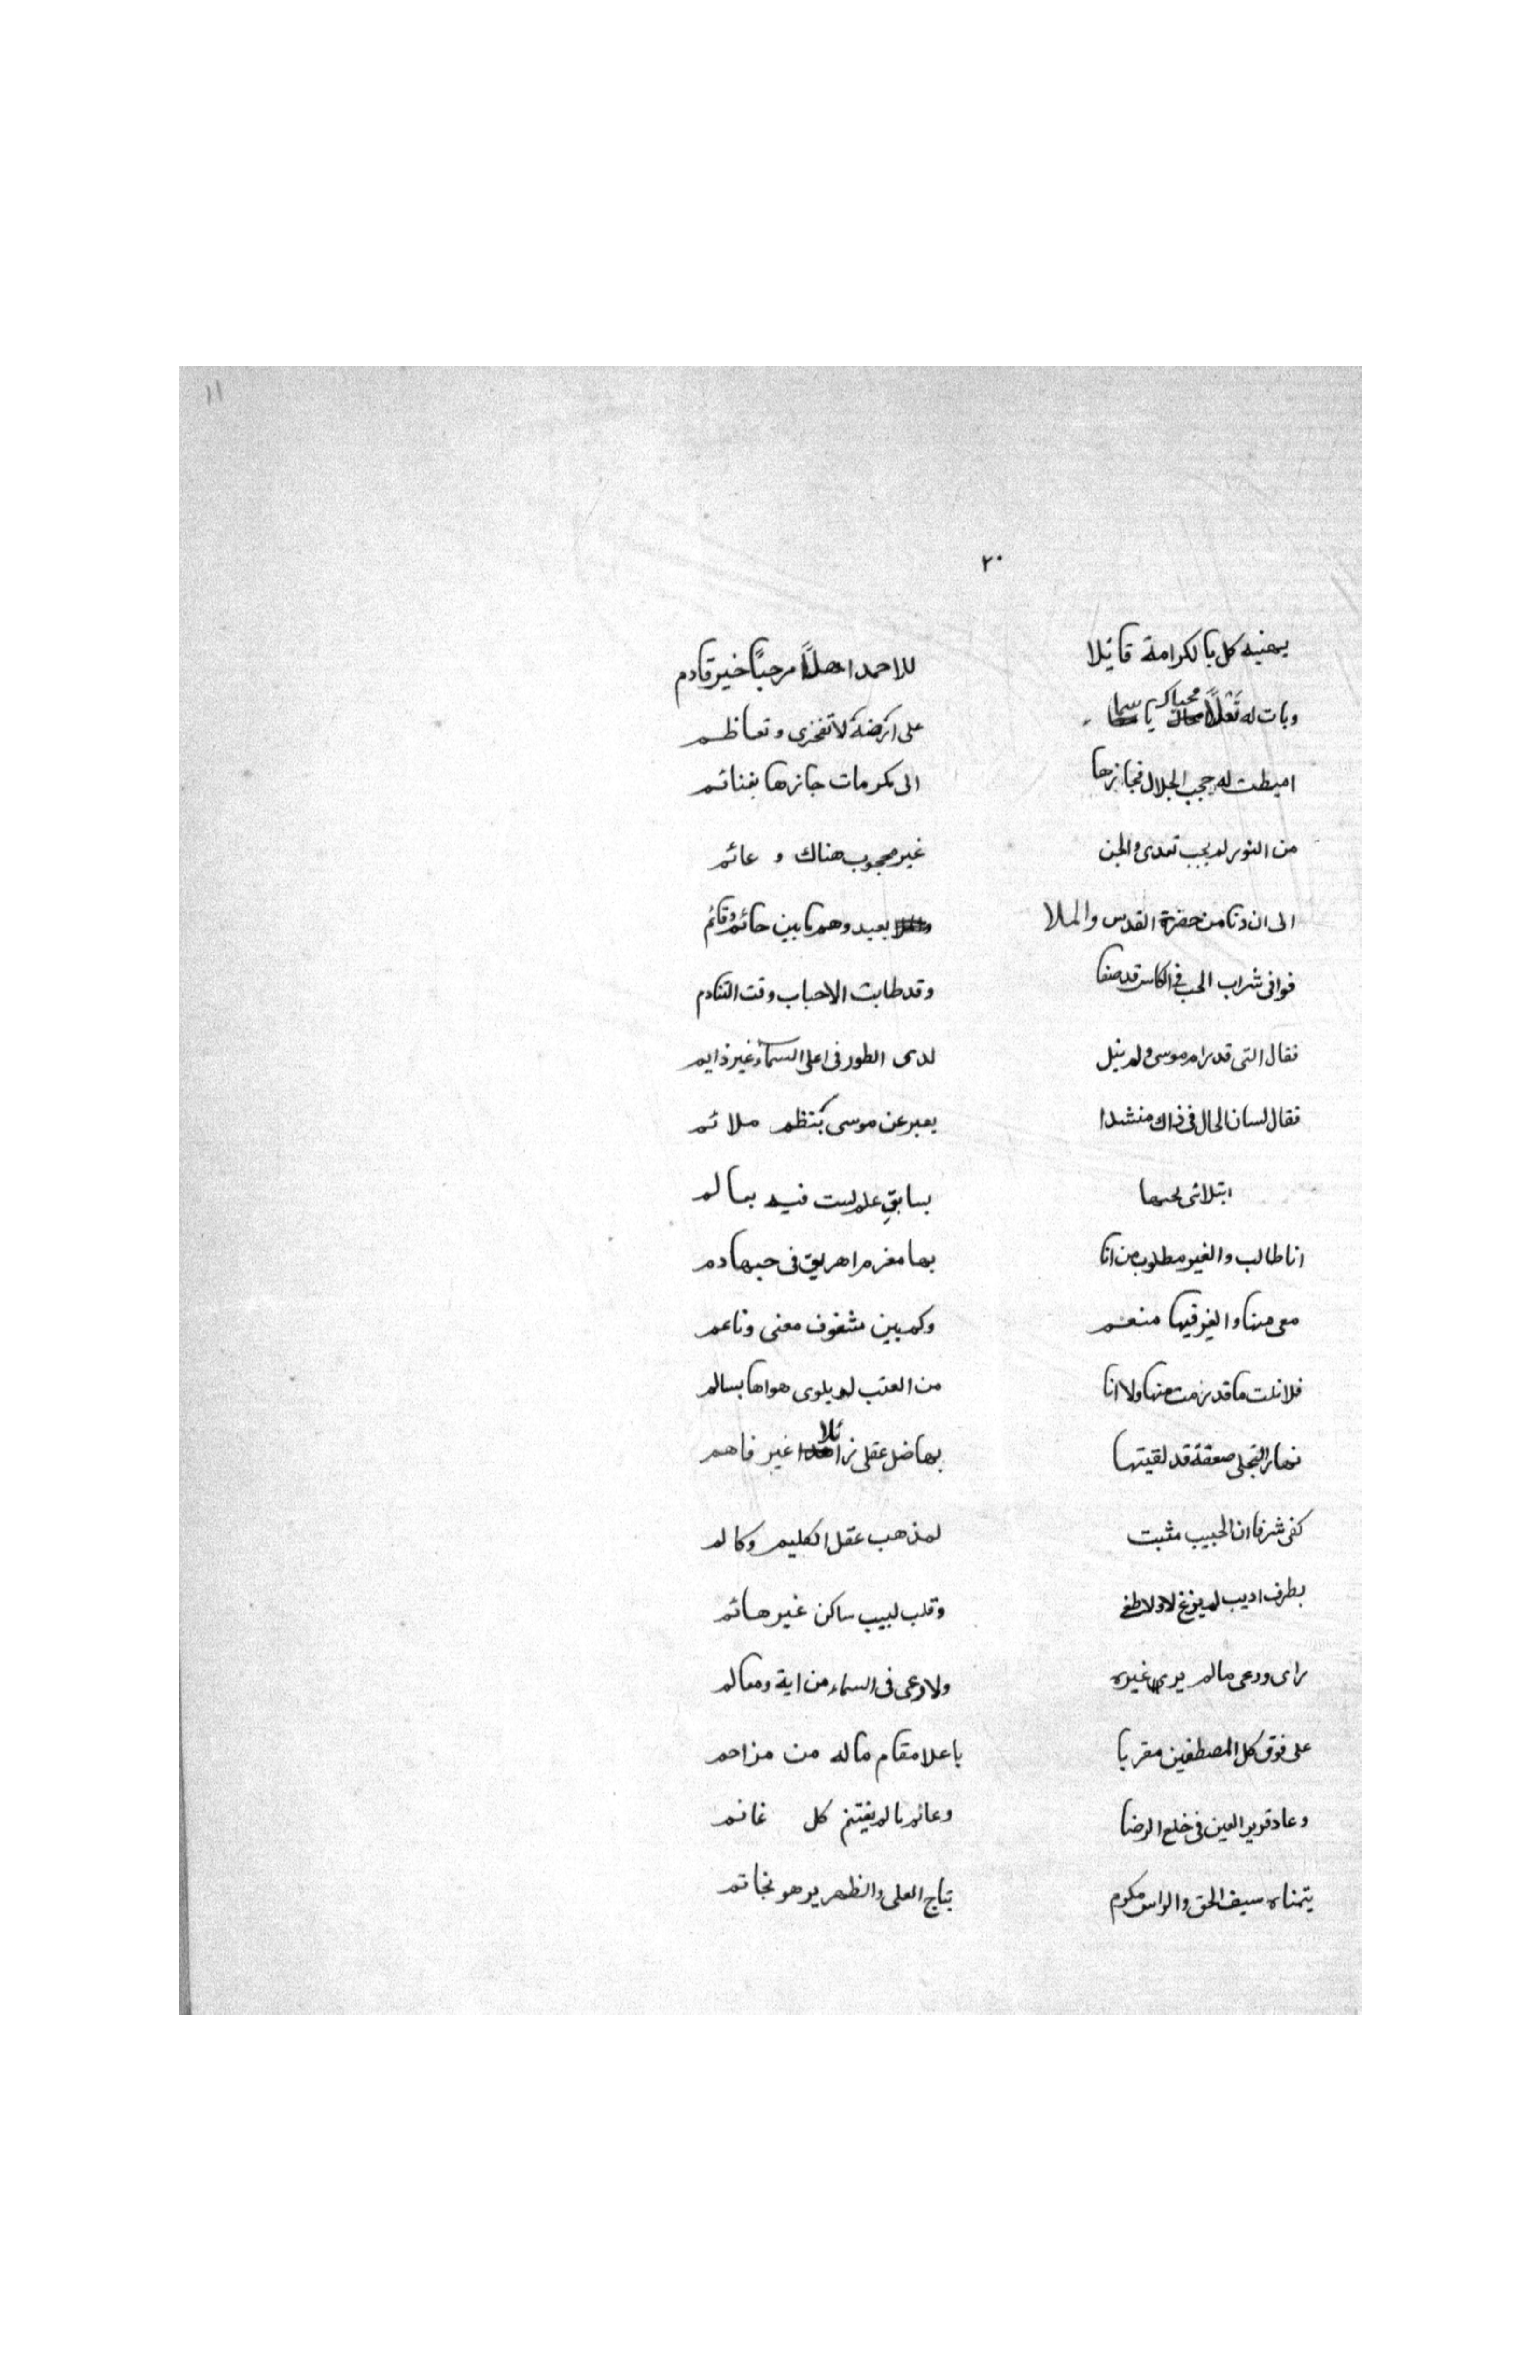 ١١
٢٠
يهنيه كل بالكرامة قائلا للاحمد اهلاً مرحباً خير قادم
وبات له نعلاً محياك يا سما على ارضه لا تفخري وتعاظم
اميطت له حجب الجلال فجازها الى مكرمات حازها بغنائم
من النور لم يجب تعدى والجن غير محجوب هناك و عائم
الى ان دنا من حضرة القدس والملا بعيد وهم ما بين حائم وقائم
فوافى شراب الحب في الكاس قد صفا وقد طابت الاحباب وقت التنادم
فقال التى قد رام موسى ولم ينل لدى الطور فى اعلى السماء غير ذايم
فقال لسان الحال فى ذاك منشدا يعبر عن موسى بنظم ملائم
ابتلانى بحبها بسابقِ علم لست فيه بعالم
انا طالب والغير مطلوب من انا بها مغرم اهريق فى حبها دم
معى منها والغير فيها منعم وكم بين مشغوف معنى وناعم
فلا نلت ما قد رمت منها ولا انا من العتب لم يلوى هواها بسالم
نهار التجلى صعقة قد لقيتها بها ضل عقلى زائلا غير فاهم
كفى شرفا ان الحبيب مثبت لمذهب عقل الكليم وكالم
بطرف اديب لم يزغ لا ولا طغى وقلب لبيب ساكن غير هائم
راى ودعى مالم يرى غيره ولا دعى فى السماء من اية ومعالم
على فوق كل المصطفين مقربا باعلا مقام ماله من مزاحم
وعاد قرير العين فى خلع الرضا وعائم بالم يغتنم كل غانم
يتمناه سيف الحق والراس مكرم بتاج العلى والظهر يزهو بخاتم